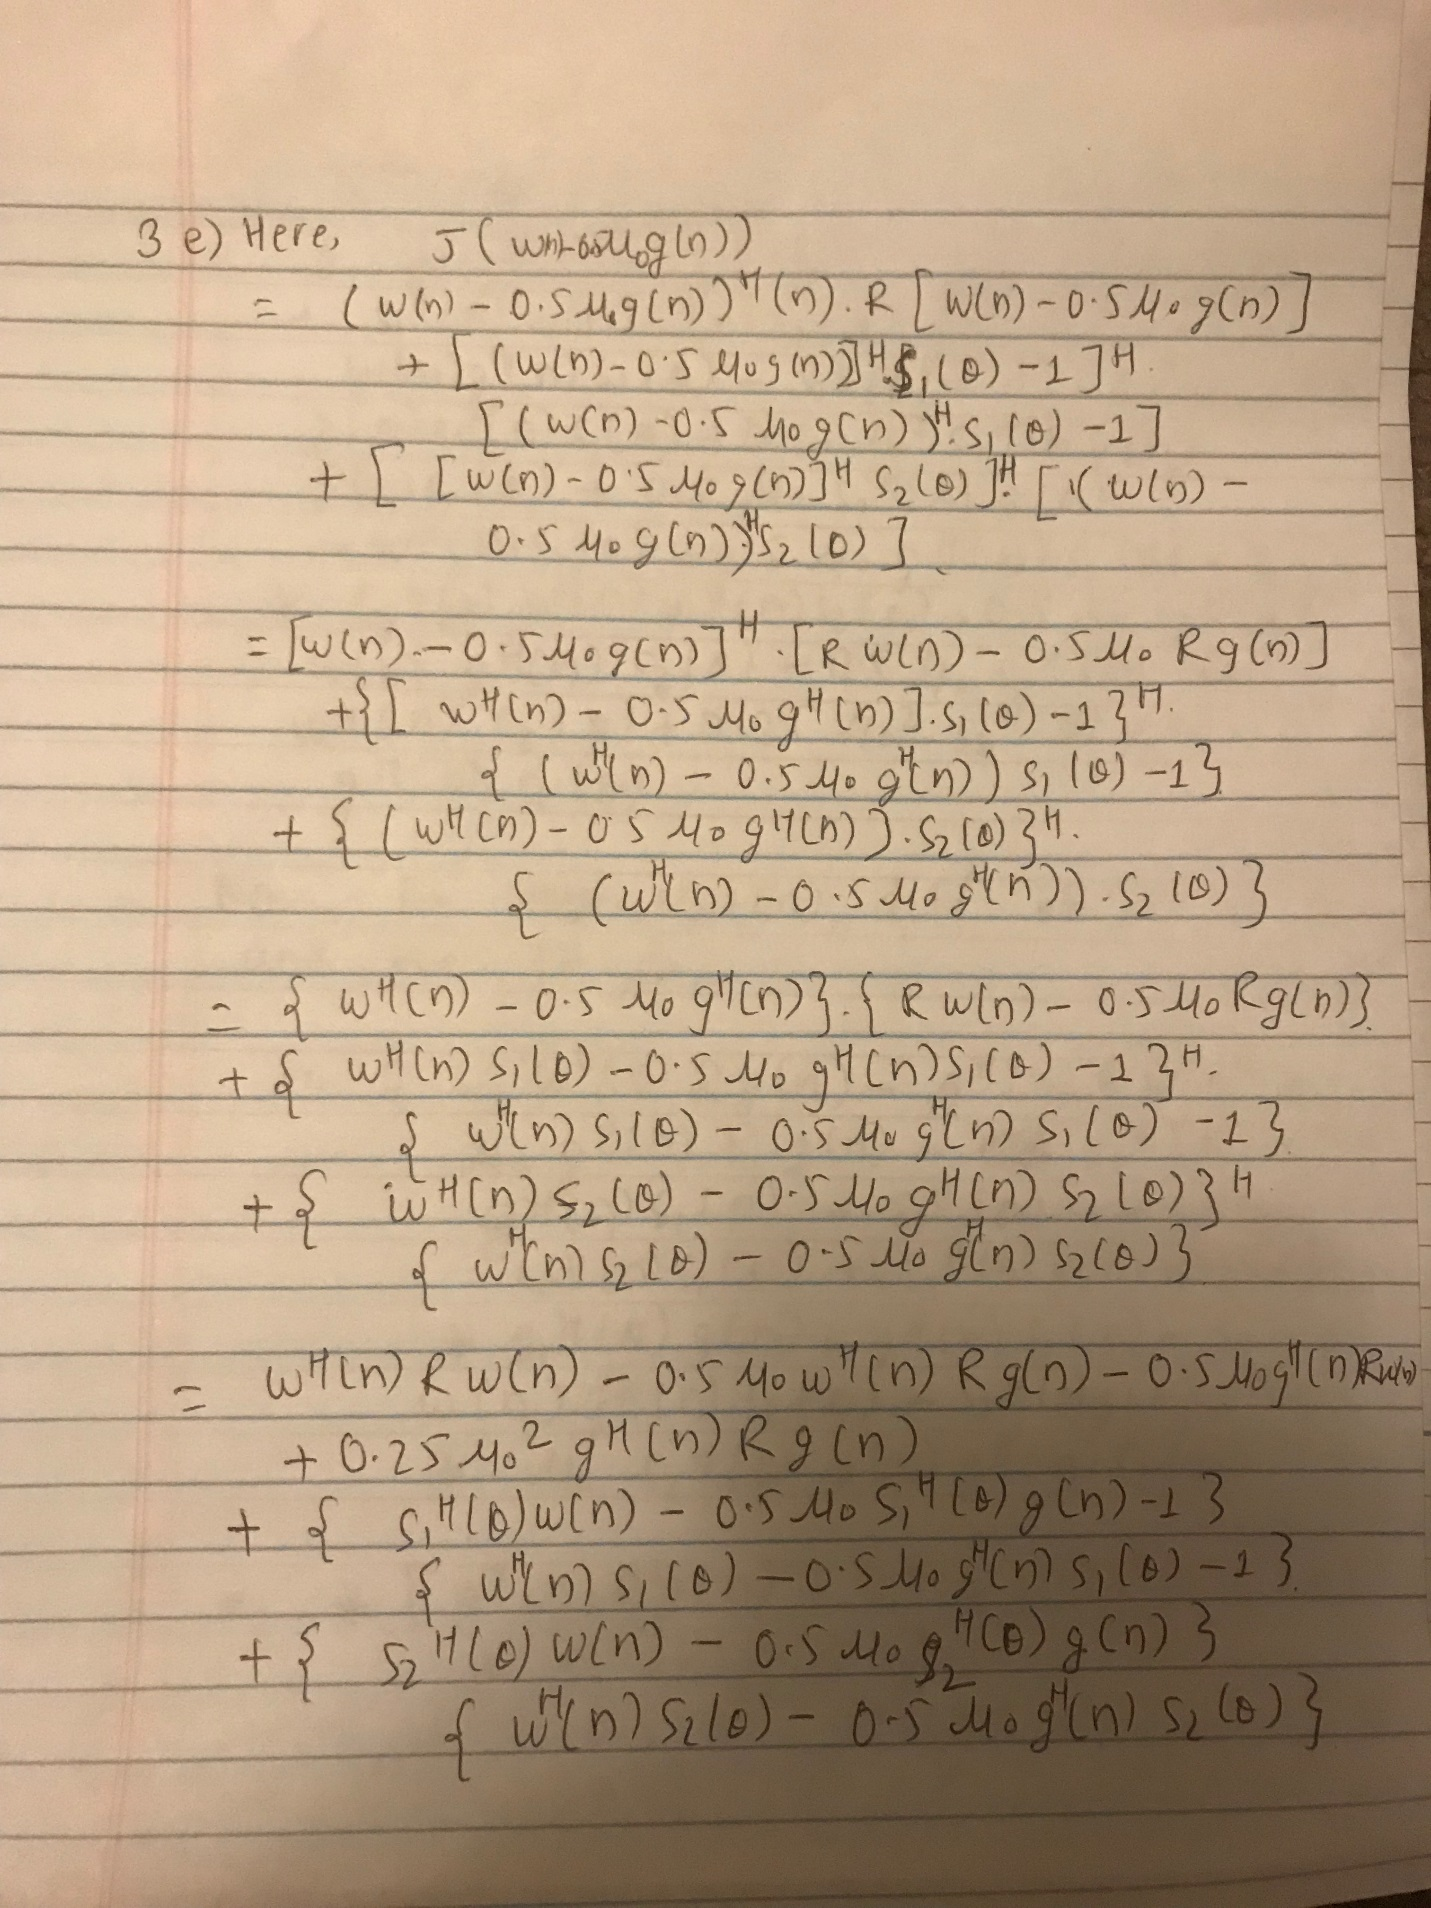 3 e) Here, J ( w(n)-0.5μ₀g(n))
= ( w(n) - 0.5 μ₀g(n))ᴴ (n). R [ w(n) - 0.5 μ₀ g(n) ]
+ [ (w(n) - 0.5 μ₀ g(n))]ᴴ. S₁(θ) - 1 ]ᴴ.
[ (w(n) - 0.5 μ₀ g(n) )ᴴ. S₁(θ) - 1 ]
+ [ [ w(n) - 0.5 μ₀ g(n)]ᴴ S₂(θ) ]ᴴ. [ ( w(n) -
0.5 μ₀ g(n))ᴴ. S₂(θ) ]
= [w(n) - 0.5 μ₀ g(n)]ᴴ . [ R w(n) - 0.5 μ₀ R g(n) ]
+ { [ wᴴ(n) - 0.5 μ₀ gᴴ(n) ]. S₁(θ) - 1 }ᴴ.
{ ( wᴴ(n) - 0.5 μ₀ gᴴ(n) ) S₁(θ) - 1 }
+ { ( wᴴ(n) - 0.5 μ₀ gᴴ(n) ]. S₂(θ) }ᴴ.
{ ( wᴴ(n) - 0.5 μ₀ gᴴ(n)) . S₂(θ) }
= { wᴴ(n) - 0.5 μ₀ gᴴ(n) } . { R w(n) - 0.5 μ₀ R g(n) }
+ { wᴴ(n) S₁(θ) - 0.5 μ₀ gᴴ(n) S₁(θ) - 1 }ᴴ.
{ wᴴ(n) S₁(θ) - 0.5 μ₀ gᴴ(n) S₁(θ) - 1 }
+ { wᴴ(n) S₂(θ) - 0.5 μ₀ gᴴ(n) S₂(θ) }ᴴ
{ wᴴ(n) S₂(θ) - 0.5 μ₀ gᴴ(n) S₂(θ) }
= wᴴ(n) R w(n) - 0.5 μ₀ wᴴ(n) R g(n) - 0.5 μ₀ gᴴ(n) R w(n)
+ 0.25 μ₀² gᴴ(n) R g(n)
+ { S₁ᴴ(θ) w(n) - 0.5 μ₀ S₁ᴴ(θ) g(n) - 1 }
{ wᴴ(n) S₁(θ) - 0.5 μ₀ gᴴ(n) S₁(θ) - 1 }
+ { S₂ᴴ(θ) w(n) - 0.5 μ₀ S₂ᴴ(θ) g(n) }
{ wᴴ(n) S₂(θ) - 0.5 μ₀ gᴴ(n) S₂(θ) }